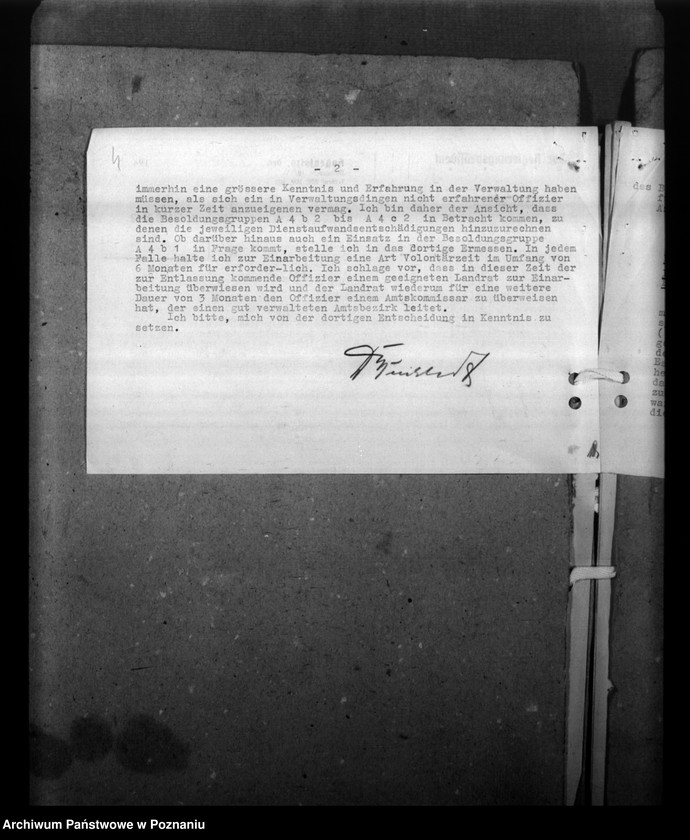 - 2 -
immerhin eine grössere Kenntnis und Erfahrung in der Verwaltung haben
müssen, als sich ein in Verwaltungsdingen nicht erfahrener Offizier
in kurzer Zeit anzueigenen vermag. Ich bin daher der Ansicht, dass
die Besoldungsgruppen A 4 b 2 bis A 4 c 2 in Betracht kommen, zu
denen die jeweiligen Dienstaufwandsentschädigungen hinzuzurechnen
sind. Ob darüber hinaus auch ein Einsatz in der Besoldungsgruppe
A 4 b 1 in Frage kommt, stelle ich in das dortige Ermessen. In jedem
Falle halte ich zur Einarbeitung eine Art Volontärzeit im Umfang von
6 Monaten für erforder-lich. Ich schlage vor, dass in dieser Zeit der
zur Entlassung kommende Offizier einem geeigneten Landrat zur Einar-
beitung überwiesen wird und der Landrat wiederum für eine weitere
Dauer von 3 Monaten den Offizier einem Amtskommissar zu überweisen
hat, der einen gut verwalteten Amtsbezirk leitet.
Ich bitte, mich von der dortigen Entscheidung in Kenntnis zu
setzen.
des
Archiwum Państwowe w Poznaniu